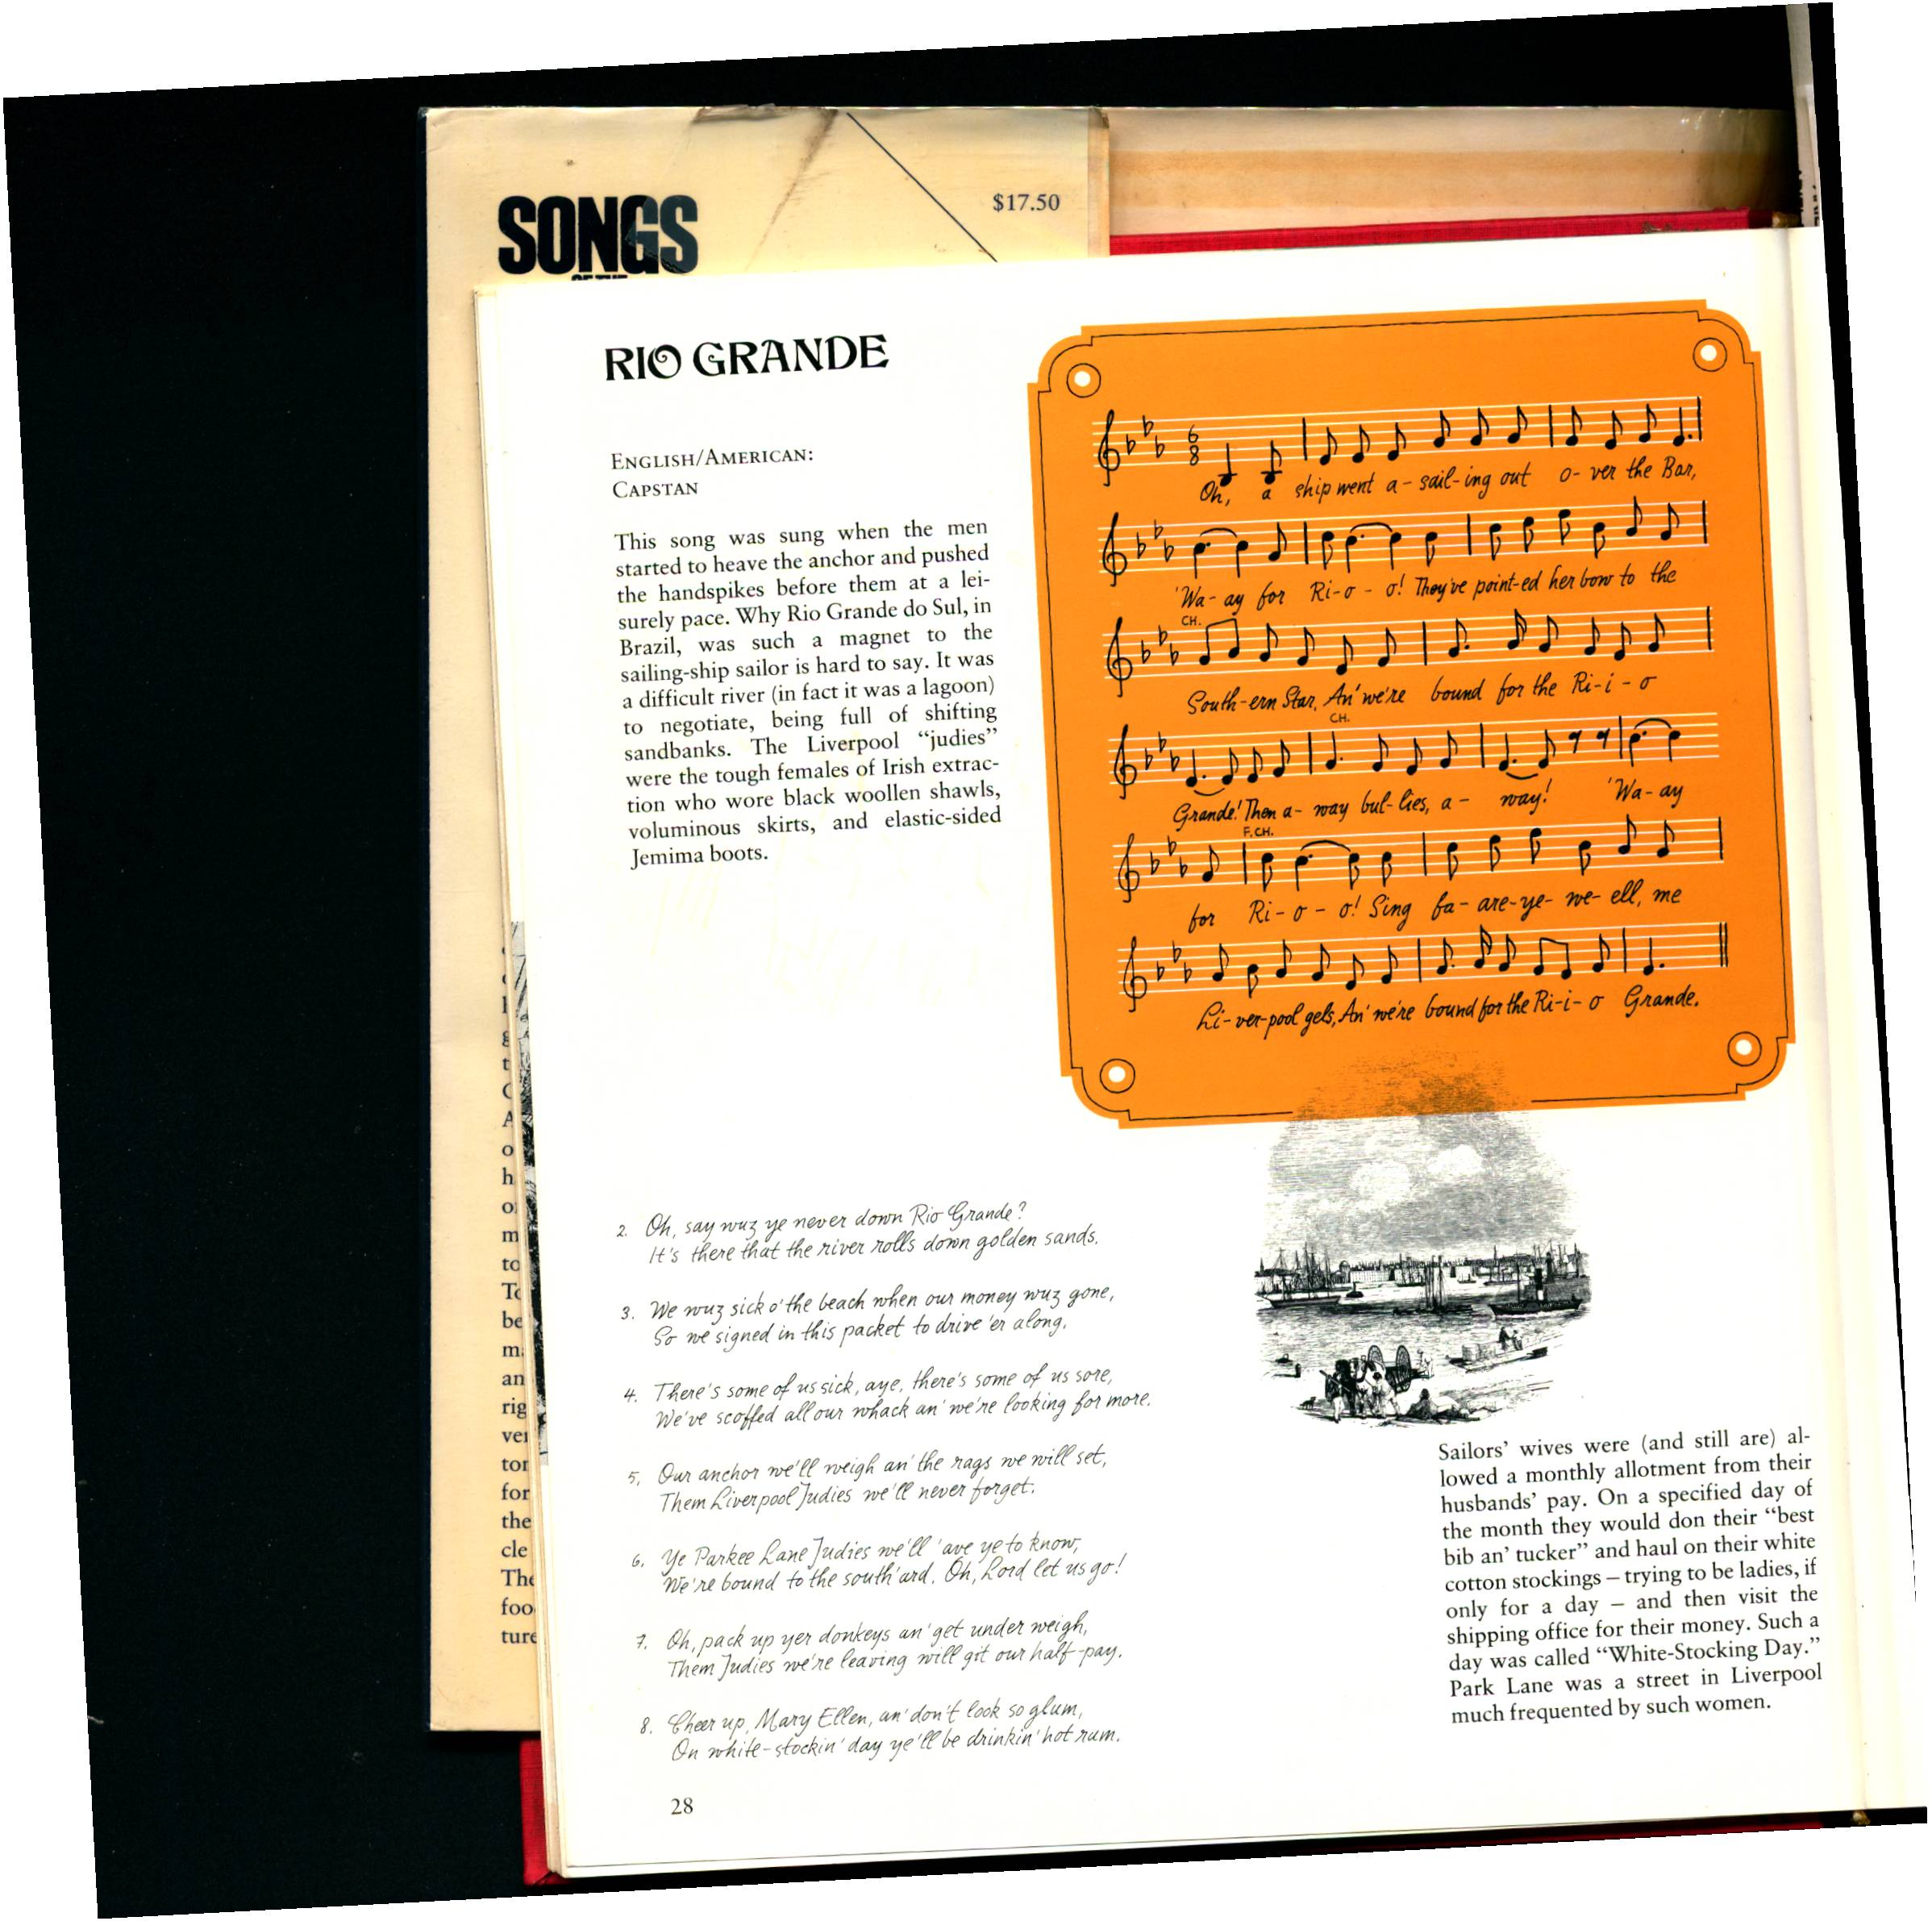 SONGS
$17.50
RIO GRANDE
ENGLISH/AMERICAN:
CAPSTAN
This song was sung when the men
started to heave the anchor and pushed
the handspikes before them at a lei-
surely pace. Why Rio Grande do Sul, in
Brazil, was such a magnet to the
sailing-ship sailor is hard to say. It was
a difficult river (in fact it was a lagoon)
to negotiate, being full of shifting
sandbanks. The Liverpool “judies”
were the tough females of Irish extrac-
tion who wore black woollen shawls,
voluminous skirts, and elastic-sided
Jemima boots.
6
8
Oh, a ship went a-sail-ing out o-ver the Bar,
'Wa-ay for Ri-o-o! They've point-ed her bow to the
CH.
South-ern Star, An' we're bound for the Ri-i-o
CH.
Grande! Then a-way bul-lies, a-way! 'Wa-ay
F.CH.
for Ri-o-o! Sing fa-are-ye-we-ell, me
Li-ver-pool gels, An' we're bound for the Ri-i-o Grande.
2. Oh, say wuz ye never down Rio Grande?
It's there that the river rolls down golden sands.
3. We wuz sick o' the beach when our money wuz gone,
So we signed in this packet to drive 'er along.
4. There's some of us sick, aye, there's some of us sore,
We've scoffed all our whack an' we're looking for more.
5. Our anchor we'll weigh an' the rags we will set,
Them Liverpool Judies we'll never forget.
6. Ye Parkee Lane Judies we'll 'ave ye to know,
We're bound to the south'ard. Oh, Lord let us go!
7. Oh, pack up yer donkeys an' get under weigh,
Them Judies we're leaving will git our half-pay.
8. Cheer up, Mary Ellen, an' don't look so glum,
On white-stockin' day ye'll be drinkin' hot rum.
Sailors' wives were (and still are) al-
lowed a monthly allotment from their
husbands' pay. On a specified day of
the month they would don their “best
bib an' tucker” and haul on their white
cotton stockings – trying to be ladies, if
only for a day – and then visit the
shipping office for their money. Such a
day was called “White-Stocking Day.”
Park Lane was a street in Liverpool
much frequented by such women.
28